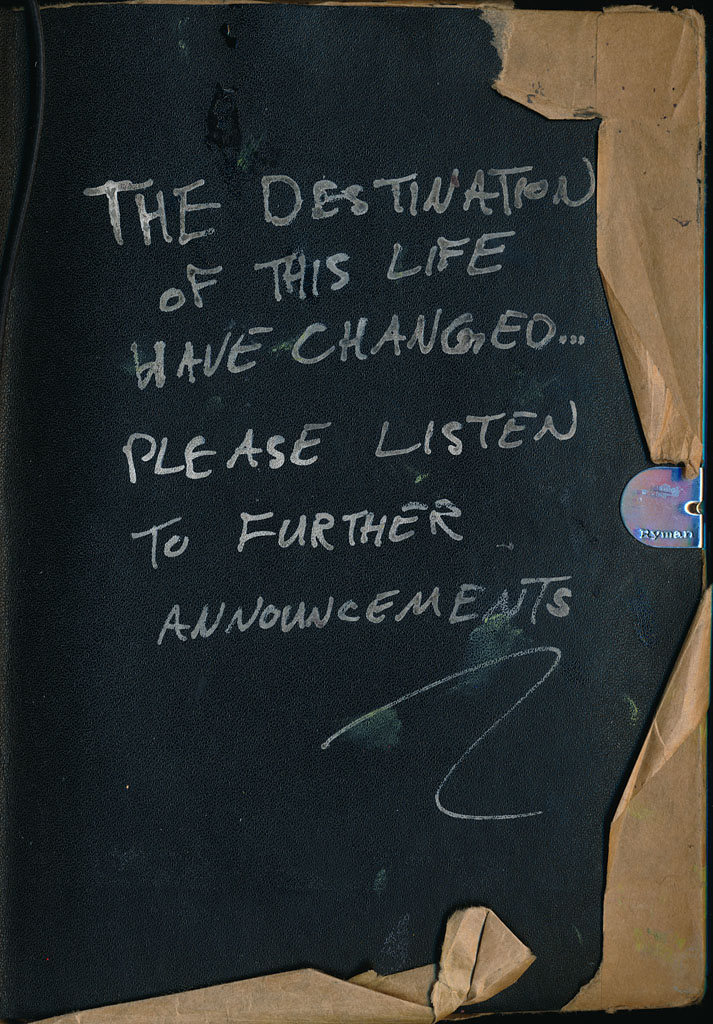 THE DESTINATION
OF THIS LIFE
HAVE CHANGED...
PLEASE LISTEN
TO FURTHER
ANNOUNCEMENTS
Ryman